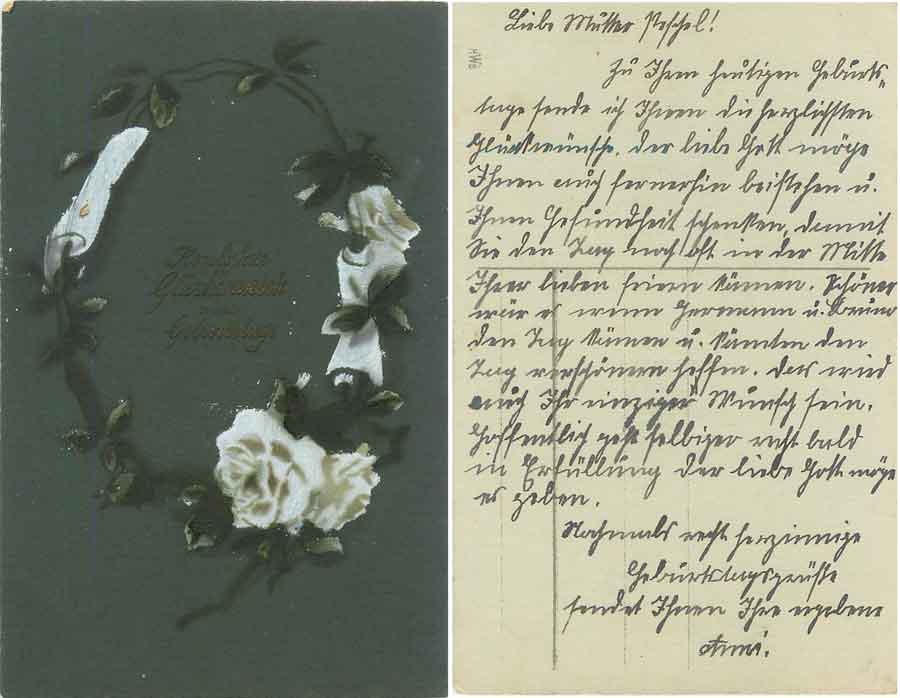 Herzlichen
Glückwunsch
zum
Geburtstage
HWB
Liebe Mutter Peschel!
Zu Ihrem heutigen Geburts-
tage sende ich Ihnen die herzlichsten
Glückwünsche. Der liebe Gott möge
Ihnen auch fernerhin beistehen u.
Ihnen Gesundheit schenken, damit
Sie den Tag noch oft in der Mitte
Ihrer lieben feiern können. Schöner
wär es wenn Hermann u. Bruno
den Tag kämen u. könnten den
Tag verschönern helfen. Das wird
auch Ihr einziger Wunsch sein.
Hoffentlich geht selbiger recht bald
in Erfüllung der liebe Gott möge
es geben.
Nochmals recht herzinnige
Geburtstagsgrüße
sendet Ihnen Ihre ergebene
Anni.